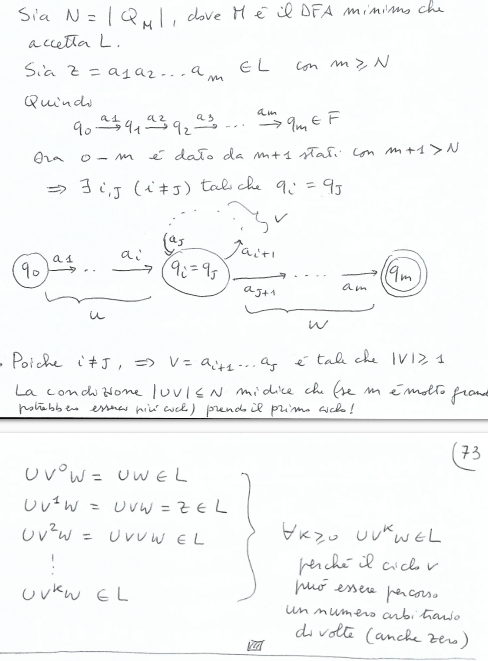 Sia N = |Q_M|, dove M è il DFA minimo che
accetta L.
Sia z = a1 a2 ... a_m ∈ L con m ≥ N
Quindi
q0 →a1 q1 →a2 q2 →a3 ... →am qm ∈ F
Ora 0 - m è dato da m+1 stati con m+1 > N
⇒ ∃ i,J (i ≠ J) tali che q_i = q_J
V
aJ
a_i+1
q0 a1 .. a_i q_i = q_J a_J+1 .... am qm
u
W
. Poiché i ≠ J, ⇒ V = a_i+1 ... a_J è tale che |V| ≥ 1
La condizione |UV| ≤ N mi dice che (se m è molto grande
potrebbero esserci più cicli) prendo il primo ciclo!
(73
UV⁰W = UW ∈ L
UV¹W = UVW = Z ∈ L
UV²W = UVVW ∈ L
⋮
UVᵏW ∈ L
∀K≥0 UVᵏW ∈ L
perché il ciclo v
può essere percorso
un numero arbitrario
di volte (anche zero)